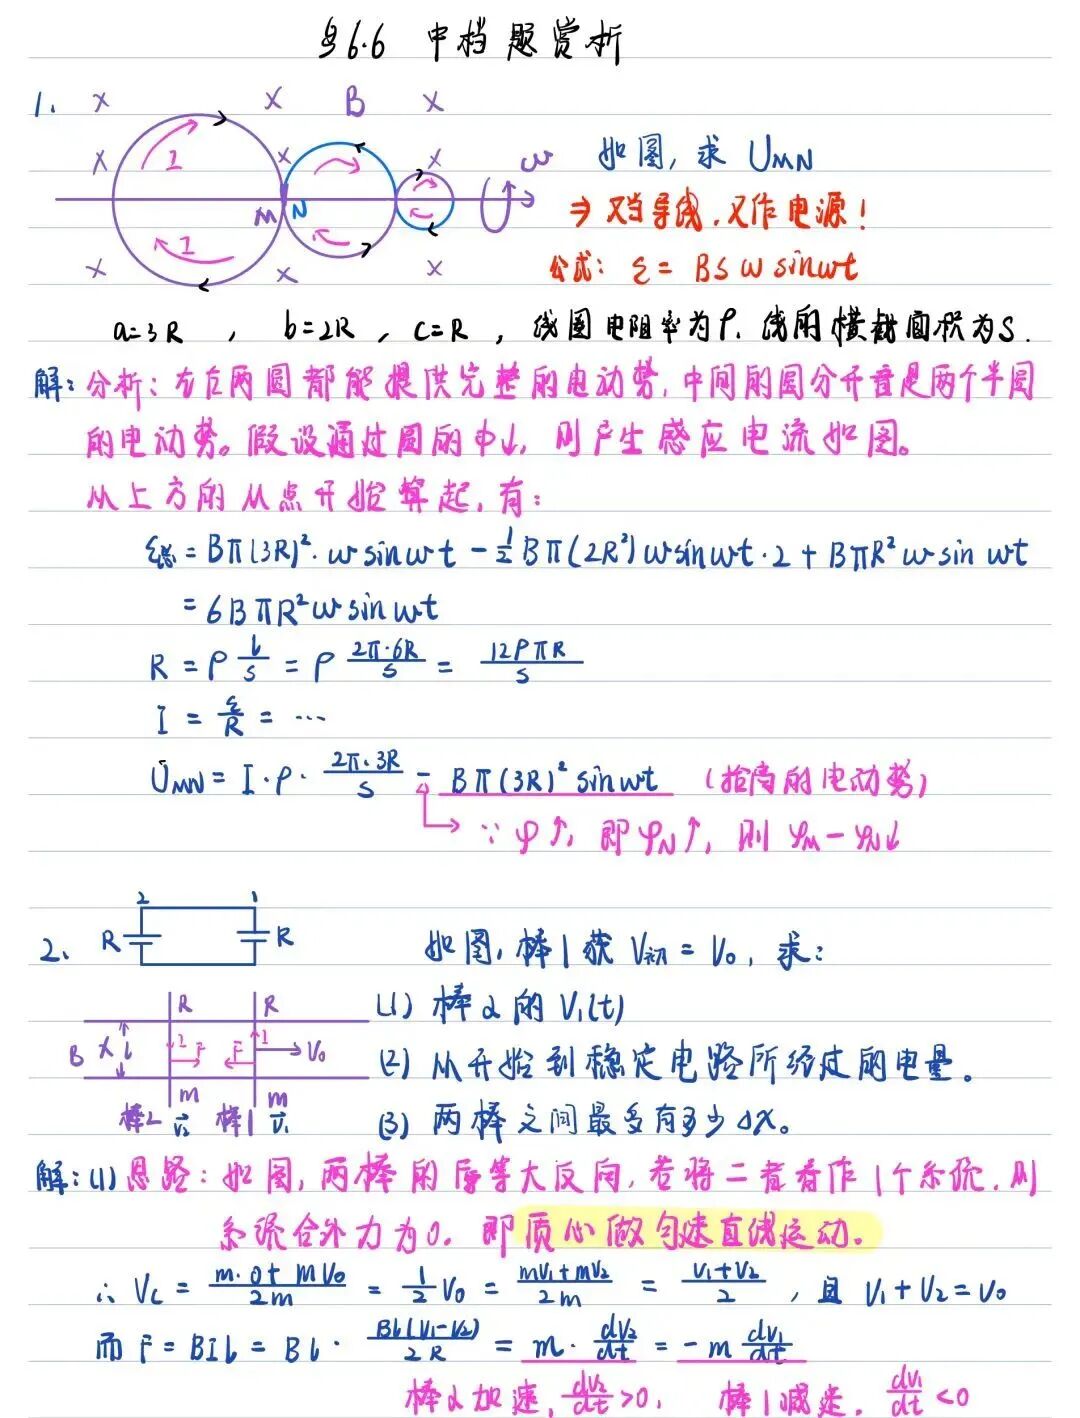 §16.6 中档题赏析
1. × × B ×
× I × × ω 如图, 求 UMN
M N ⇒ 又当导线, 又作电源!
× I × × 公式: ε = BSω sinωt
a=3R , b=2R , c=R , 线圈电阻率为ρ, 线的横截面积为S.
解: 分析: 左右两圆都能提供完整的电动势, 中间的圆分开看是两个半圆
的电动势。假设通过圆的Φ↓, 则产生感应电流如图。
从上方的M点开始算起, 有:
ε总 = Bπ(3R)²·ωsinωt - ½Bπ(2R²)ωsinωt·2 + BπR²ωsinωt
= 6BπR²ωsinωt
R = ρ L/S = ρ 2π·6R/S = 12ρπR/S
I = ε/R = ···
UMN = I·ρ· 2π·3R/S - Bπ(3R)² sinωt (抬高的电动势)
∵ φ↑, 即φN↑, 则 φM-φN↓
2. 2 1
R R 如图, 棒1获 V初 = V0, 求:
R R (1) 棒2的 V1(t)
B × L 2 F F 1 V0 (2) 从开始到稳定电路所经过的电量。
m m
棒2 V2 棒1 V1 (3) 两棒之间最多有多少Δx。
解: (1) 思路: 如图, 两棒的F等大反向, 若将二者看作1个系统, 则
系统合外力为0, 即质心做匀速直线运动。
∴ VC = m·0+mV0/2m = 1/2 V0 = mV1+mV2/2m = V1+V2/2 , 且 V1+V2=V0
而 F = BIL = BL· BL(V1-V2)/2R = m· dV2/dt = -m dV1/dt
棒2加速, dV2/dt >0, 棒1减速, dV1/dt <0